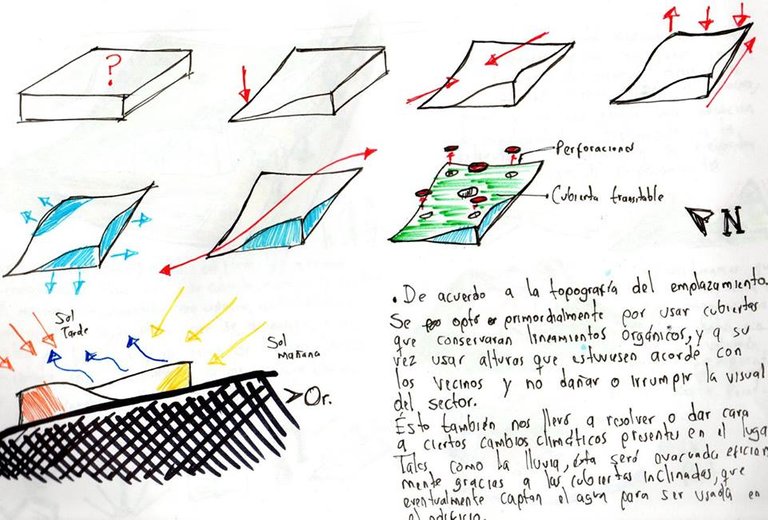 ?
Perforaciones
Cubierta transitable
N
Sol
Tarde
Sol
Mañana
Or.
. De acuerdo a la topografía del emplazamiento.
Se optó primordialmente por usar cubiertas
que conservaran lineamientos orgánicos, y a su
vez usar alturas que estuviesen acorde con
los vecinos y no dañar o irrumpir la visual
del sector.
Ésto también nos llevó a resolver o dar cara
a ciertos cambios climáticos presentes en el luga
Tales, como la lluvia, ésta será evacuada eficien
mente gracias a las cubiertas inclinadas, que
eventualmente captan el agua para ser usada en
el edificio.